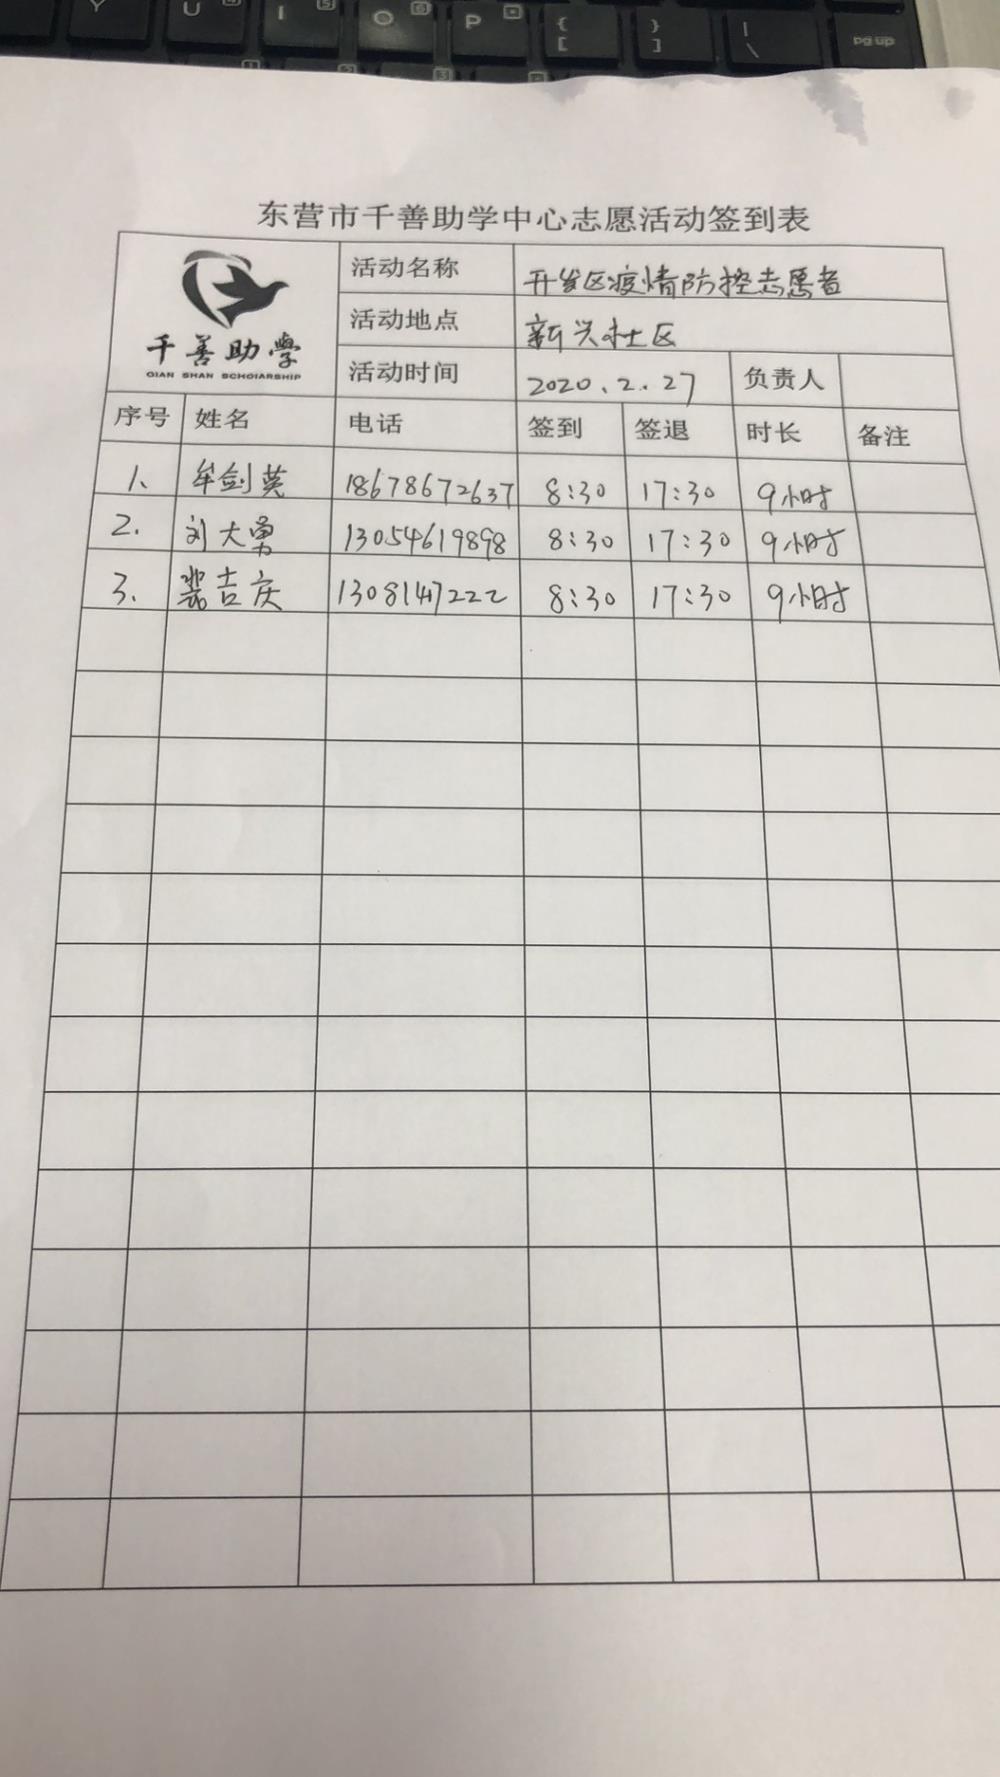 Y U I O P { [ } ] | \ pg up
东营市千善助学中心志愿活动签到表
千善助学
QIAN SHAN SCHOIARSHIP
活动名称 开发区疫情防控志愿者
活动地点 新兴社区
活动时间 2020.2.27 负责人
序号 姓名 电话 签到 签退 时长 备注
1、 牟剑英 18678672637 8:30 17:30 9小时
2. 刘大勇 13054619898 8:30 17:30 9小时
3. 裴吉庆 1308147222 8:30 17:30 9小时